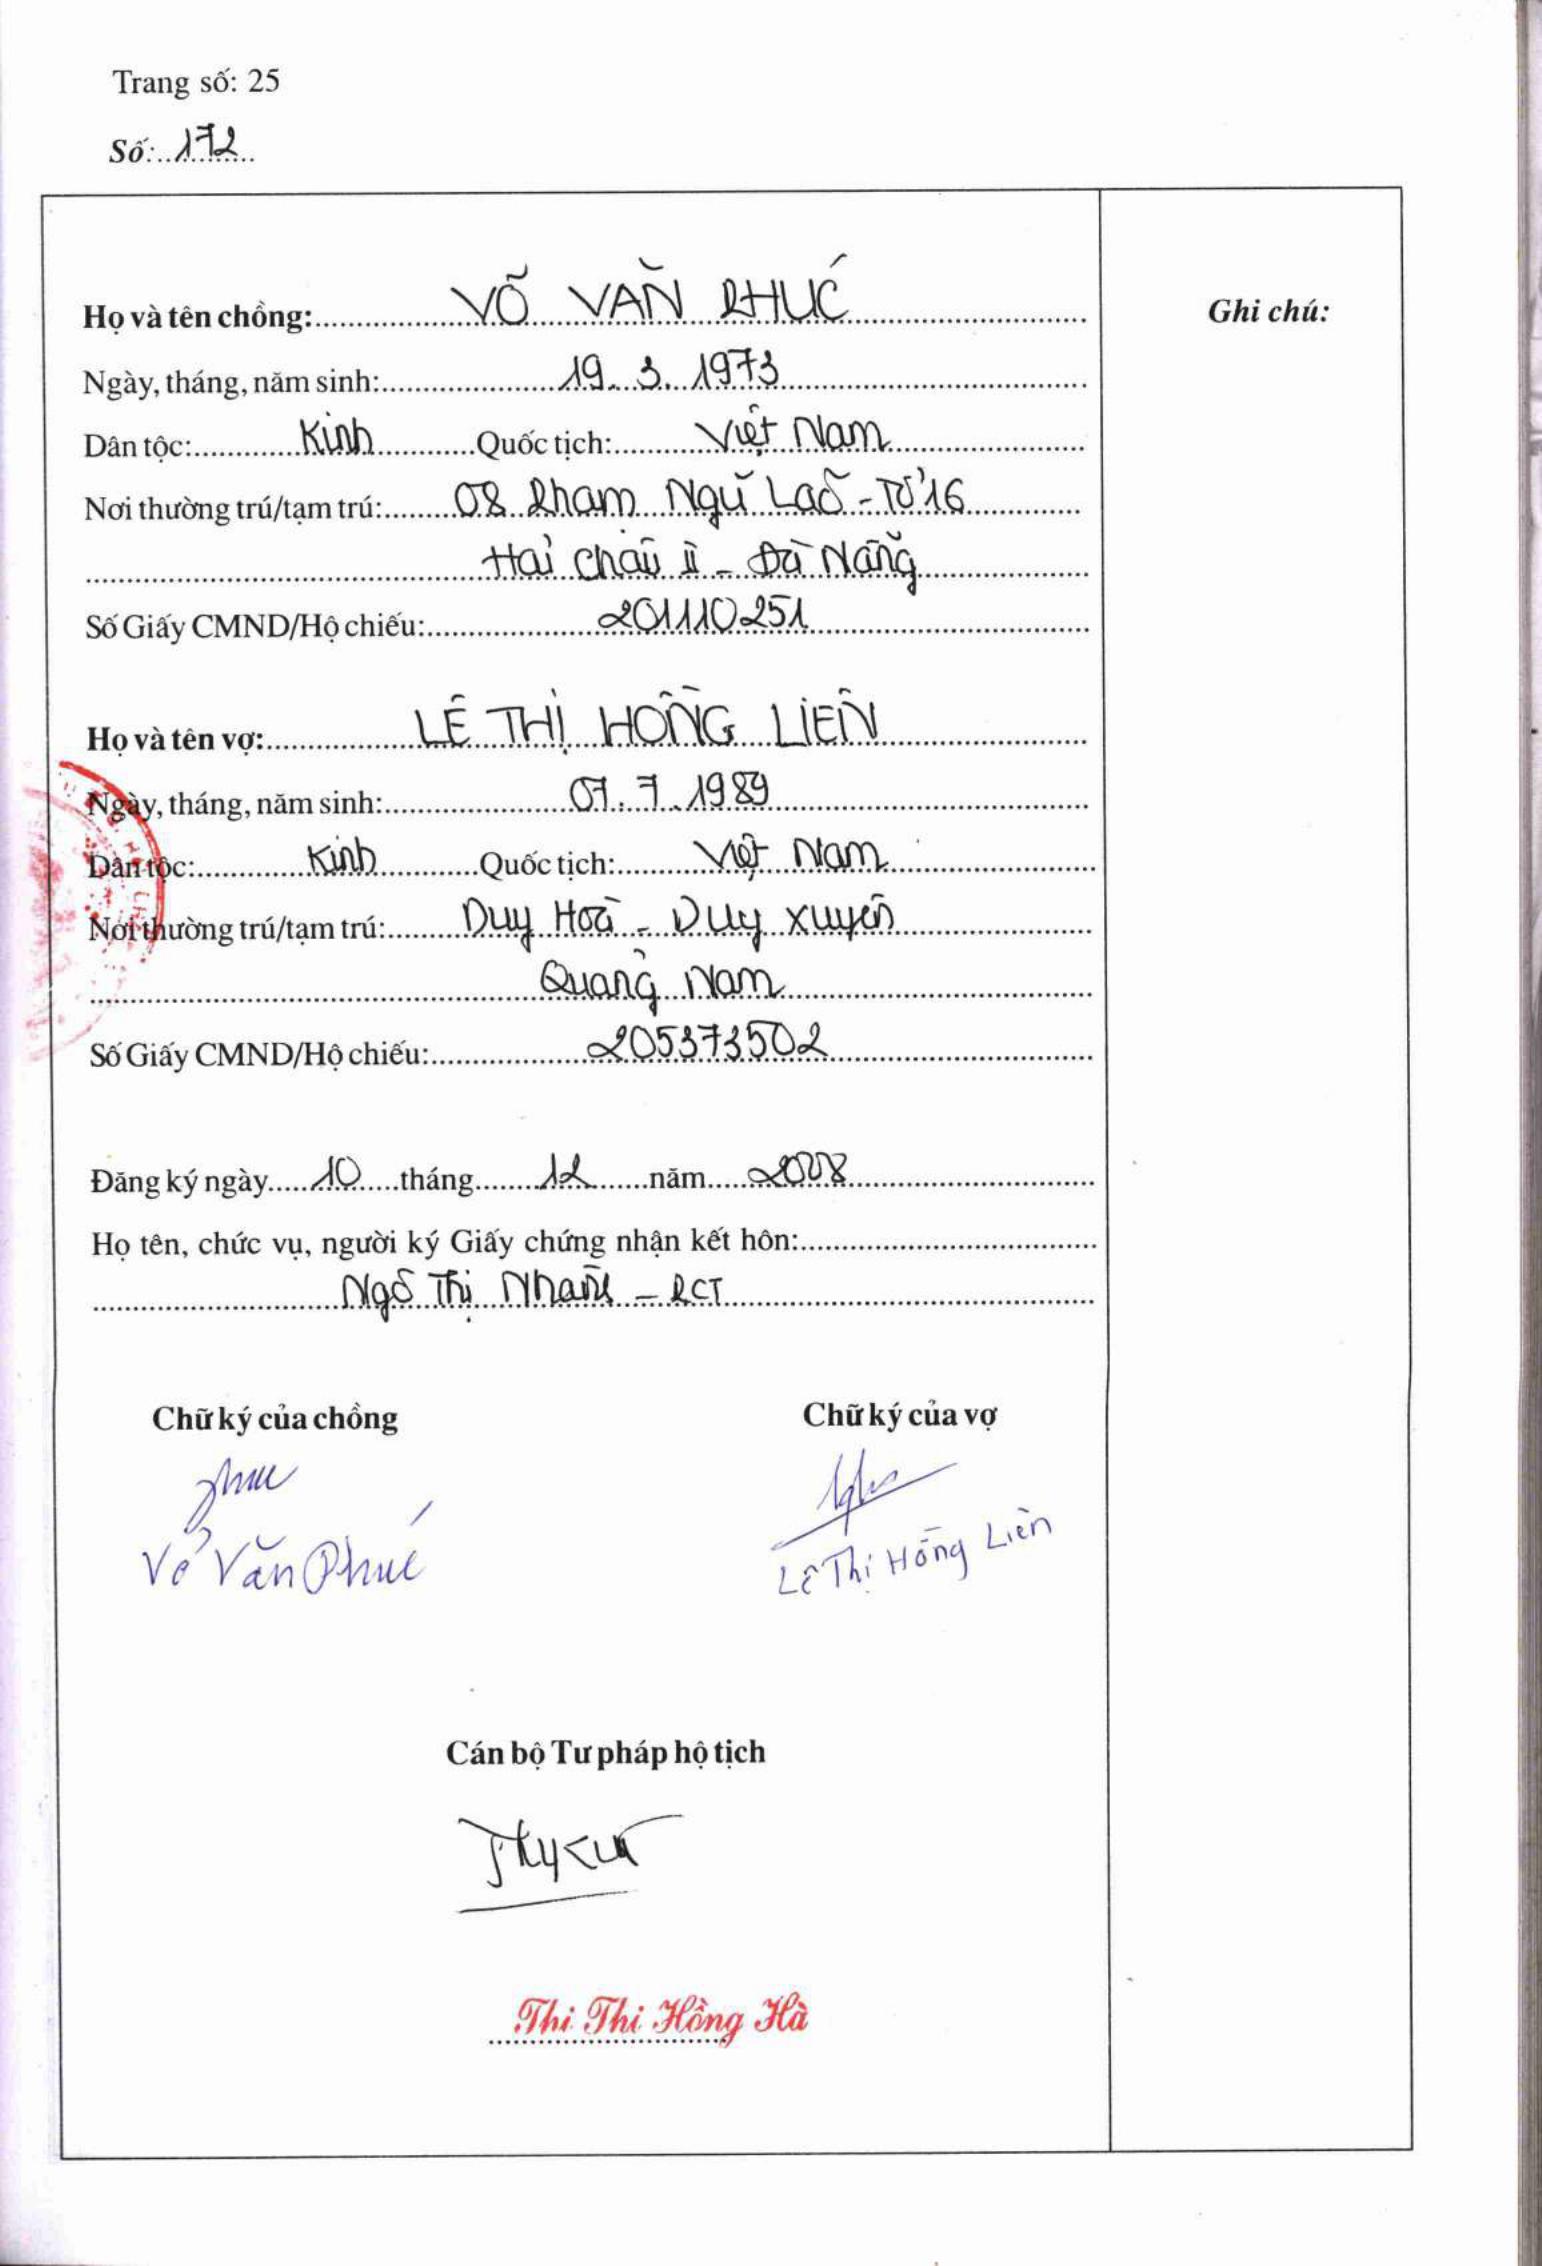 Trang số: 25
Số: 172
Họ và tên chồng: VÕ VĂN PHÚC
Ghi chú:
Ngày, tháng, năm sinh: 19. 3. 1973
Dân tộc: Kinh Quốc tịch: Việt Nam
Nơi thường trú/tạm trú: 08 Phạm Ngũ Lão - Tổ 16
Hải Châu II - Đà Nẵng
Số Giấy CMND/Hộ chiếu: 201110251
Họ và tên vợ: LÊ THỊ HỒNG LIÊN
Ngày, tháng, năm sinh: 07. 7. 1989
Dân tộc: Kinh Quốc tịch: Việt Nam
Nơi thường trú/tạm trú: Duy Hoà - Duy Xuyên
Quảng Nam
Số Giấy CMND/Hộ chiếu: 205373502
Đăng ký ngày 10 tháng 12 năm 2008
Họ tên, chức vụ, người ký Giấy chứng nhận kết hôn:
Ngô Thị Nhanh - PCT
Chữ ký của chồng Chữ ký của vợ
Phuc
Võ Văn Phúc Lê Thị Hồng Liên
Cán bộ Tư pháp hộ tịch
Thi Thi Hồng Hà